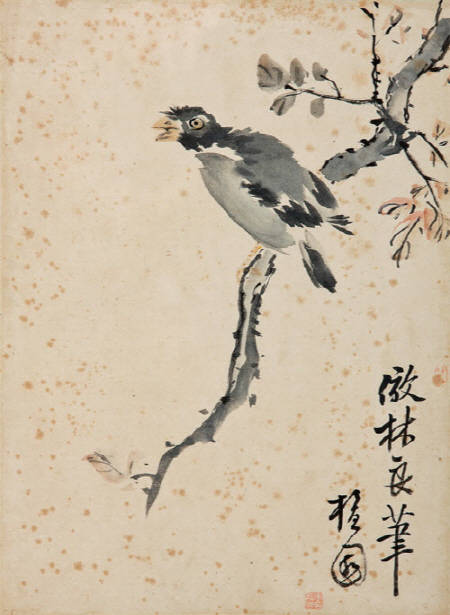 倣林良筆
檀園